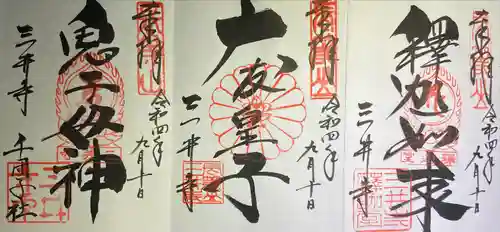 奉拝
令和四年
九月十日
釋迦如来
三井寺
奉拝
令和四年
九月十日
大友皇子
三井寺
奉拝
令和四年
九月十日
鬼子母神
三井寺